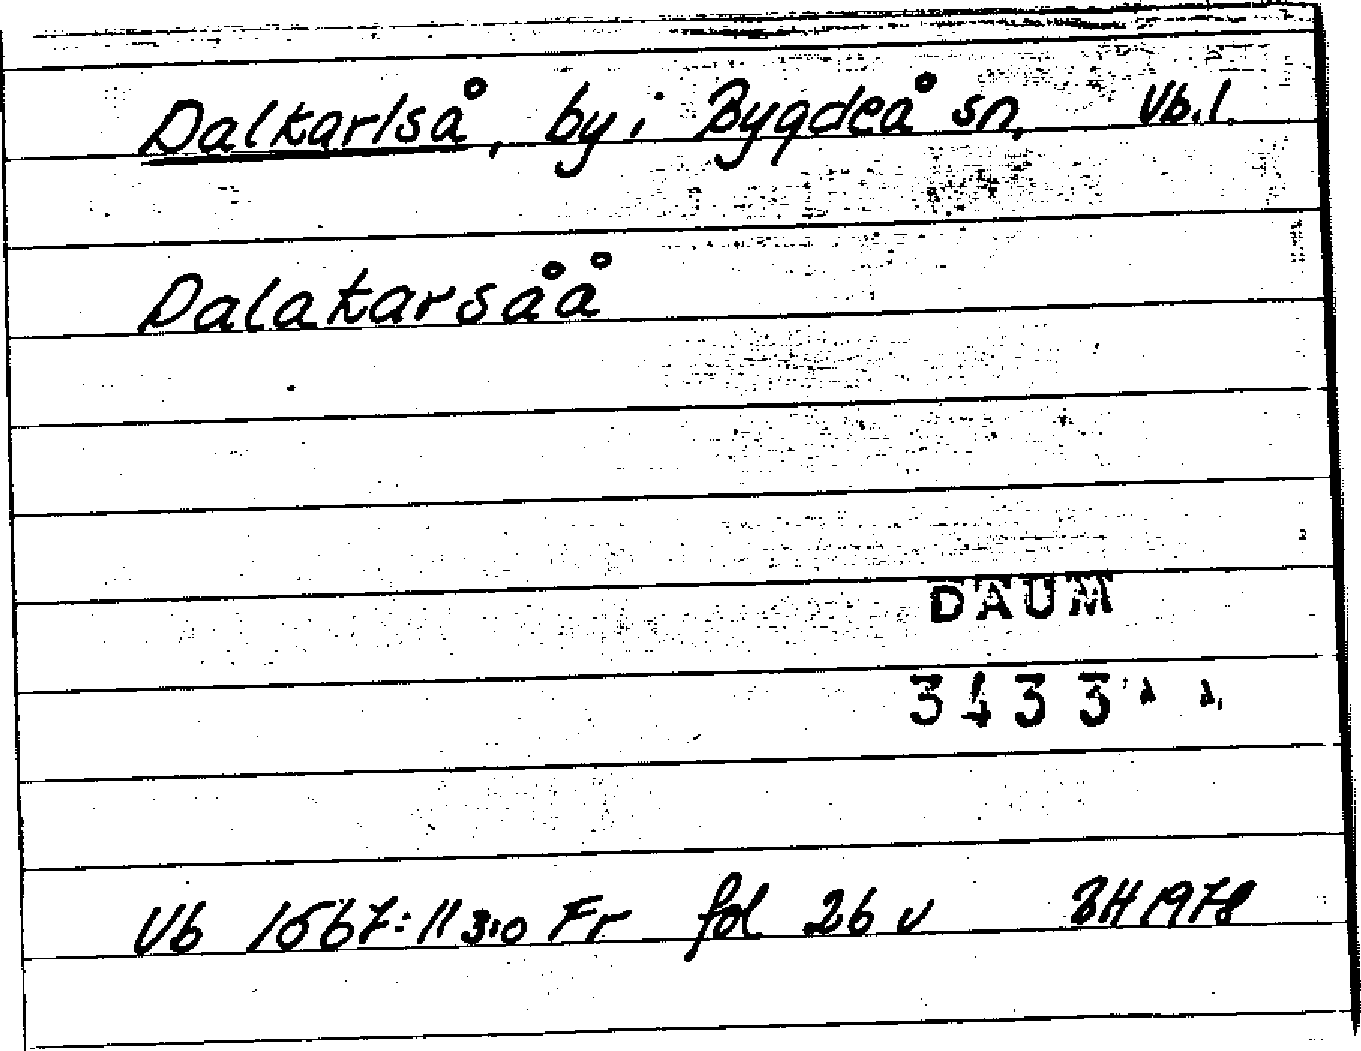 Dalkarlså, by i Bygdeå sn, Vb.l.
Dalakarsåå
DAUM
3433
Vb 1567:11 3:0 Fr fol 26 v BH 1978